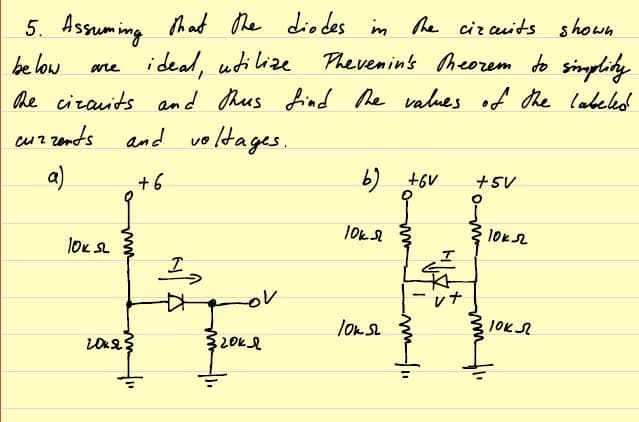 5. Assuming that the diodes in the circuits shown
below are ideal, utilize Thevenin's theorem to simplify
the circuits and thus find the values of the labeled
currents and voltages.
a) +6 b) +6V +5V
10KΩ 10KΩ 10KΩ
I I
V - V +
20KΩ 20KΩ 10KΩ 10KΩ